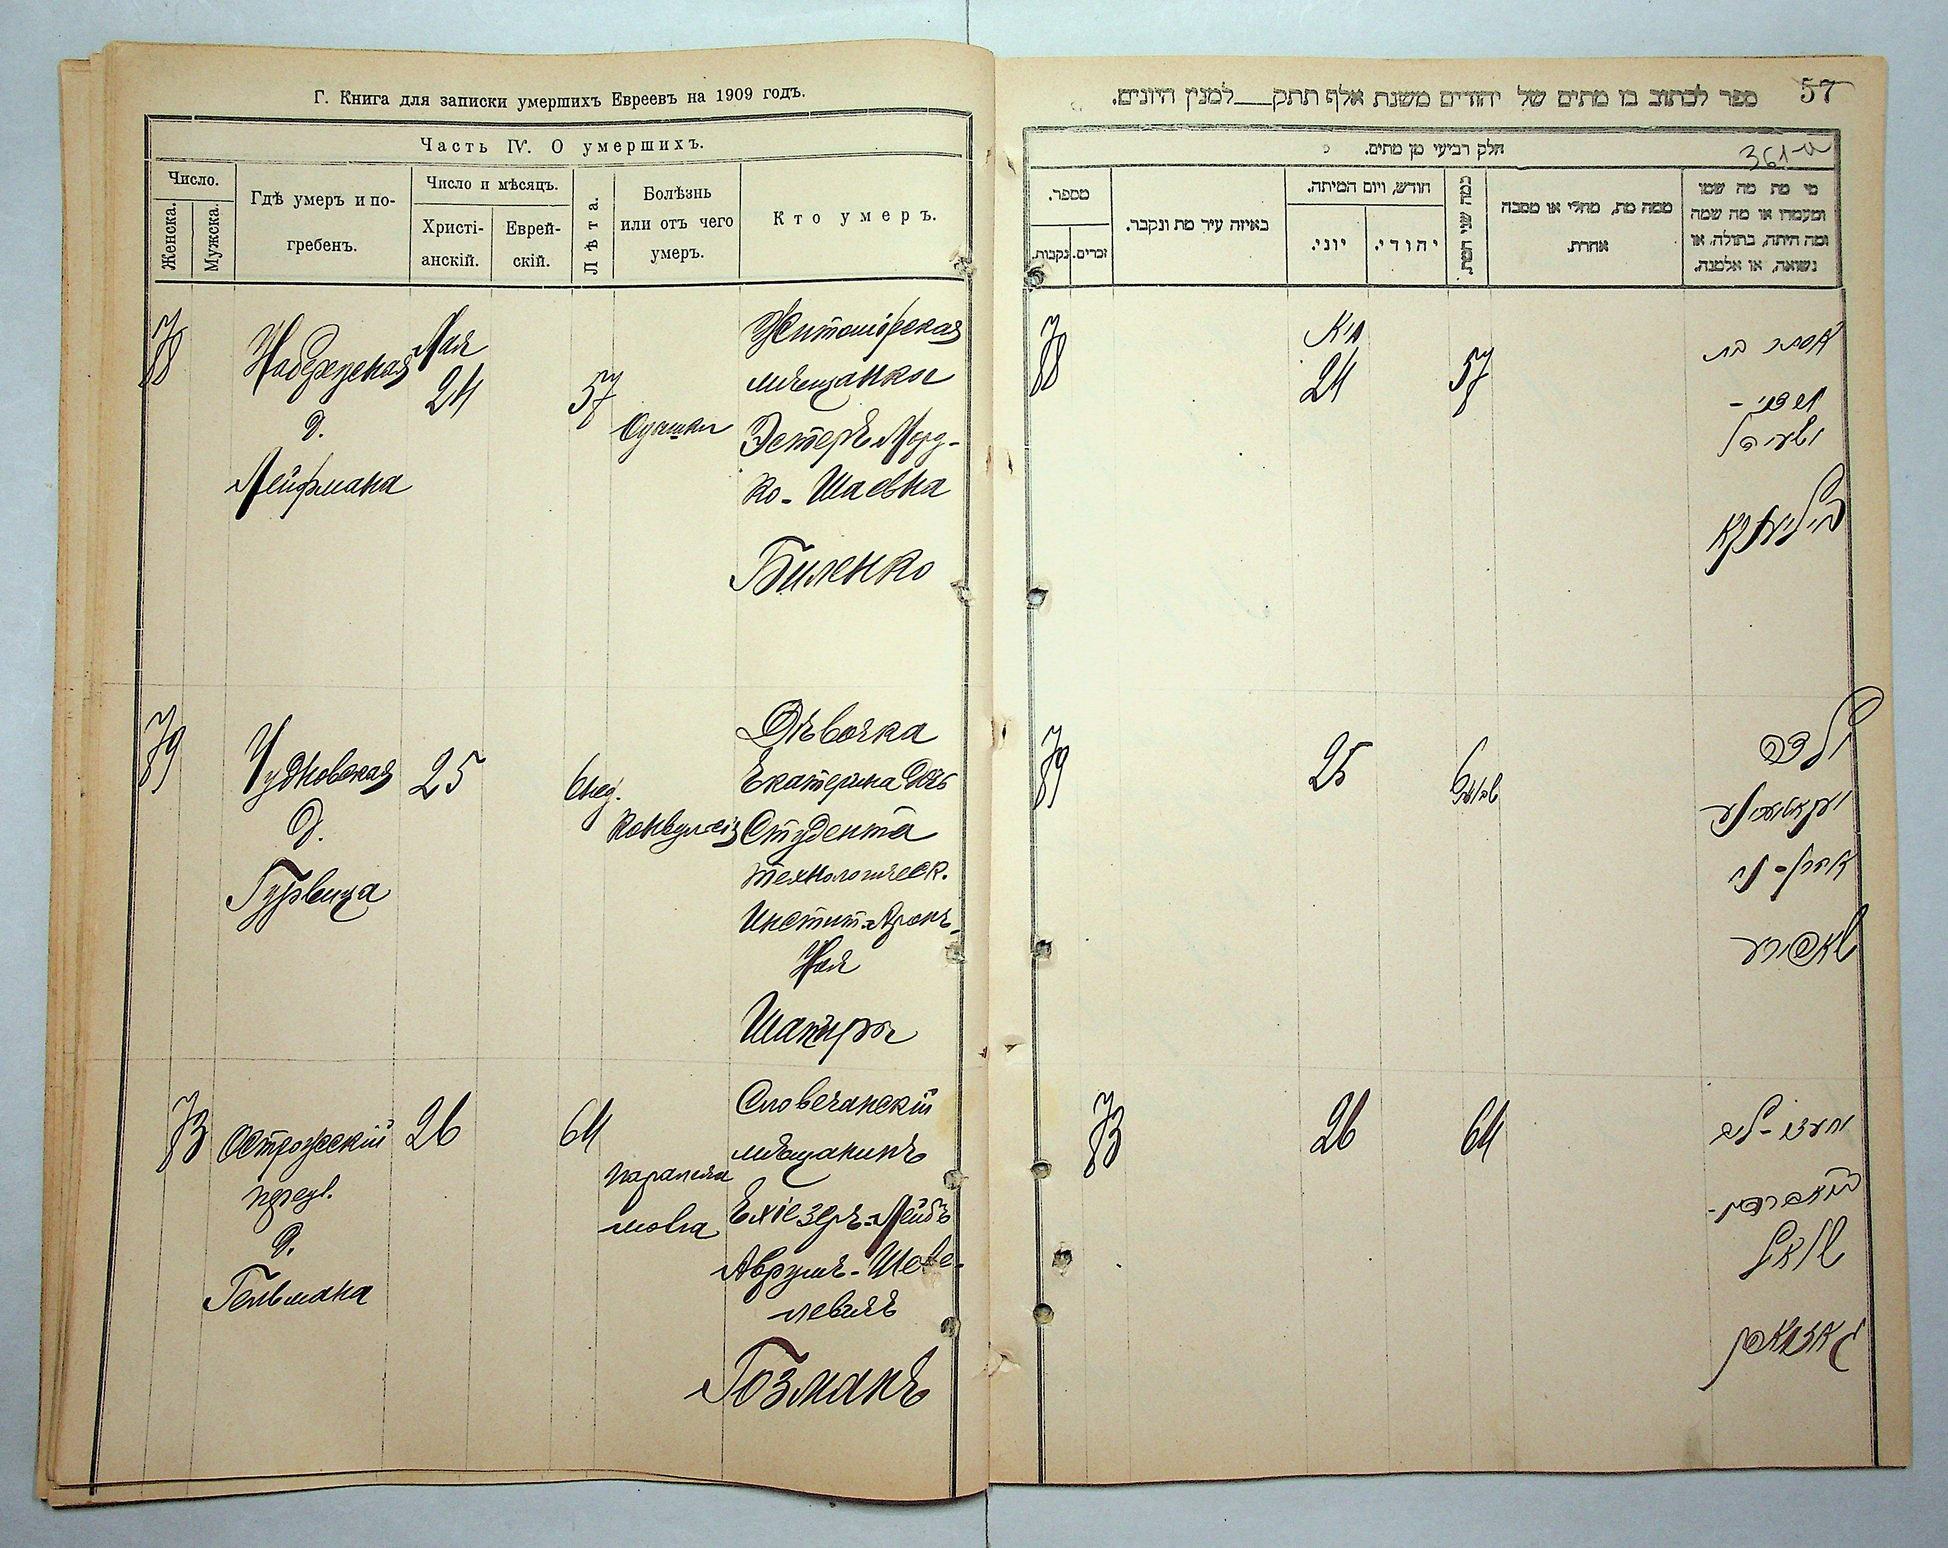 Г. Книга для записки умершихъ Евреевъ на 1909 годъ.
Часть IV. О умершихъ.
Число.
Женска.
Мужска.
Гдѣ умеръ и по-
гребенъ.
Число и мѣсяцъ.
Христі-
анскій.
Еврей-
скій.
Лѣта.
Болѣзнь
или отъ чего
умеръ.
Кто умеръ.
78
д.
Лейфмана
Мая
24
57
Житомірская
мѣщанка
Эстеръ Морд-
ко-Шаевна
Биленко
79
Чудновская
д.
Гурвица
25
6 нед.
Конвульсіи
Дѣвочка
Екатерина дочь
Студента
технологическ.
Инстит. Аронъ-
Ноя
Шапиры
73
Острожскій
переул.
д.
Гельмана
26
64
Словечанскій
мѣщанинъ
Ехіезеръ-Лейбъ
Аврумъ-Шеве-
левичъ
Гозманъ
57
ספר לכתוב בו מתים של יהודים משנת אלף תתק__למנין היונים.
361
חלק רביעי מן מתים.
מספר.
נקבות.
זכרים.
באיזה עיר מת ונקבר.
חודש, ויום המיתה.
יוני.
יהודי.
כמה שני המת.
ממה מת, מחלי או מסבה
אחרת.
מי מת מה שמו
ומעמדו או מה שמה
ומה היתה, בתולה, או
נשואה, או אלמנה.
78
מיא
24
57
אסתר בת
79
25
6
ילדה
שאפירא
73
26
64
גאזמאן